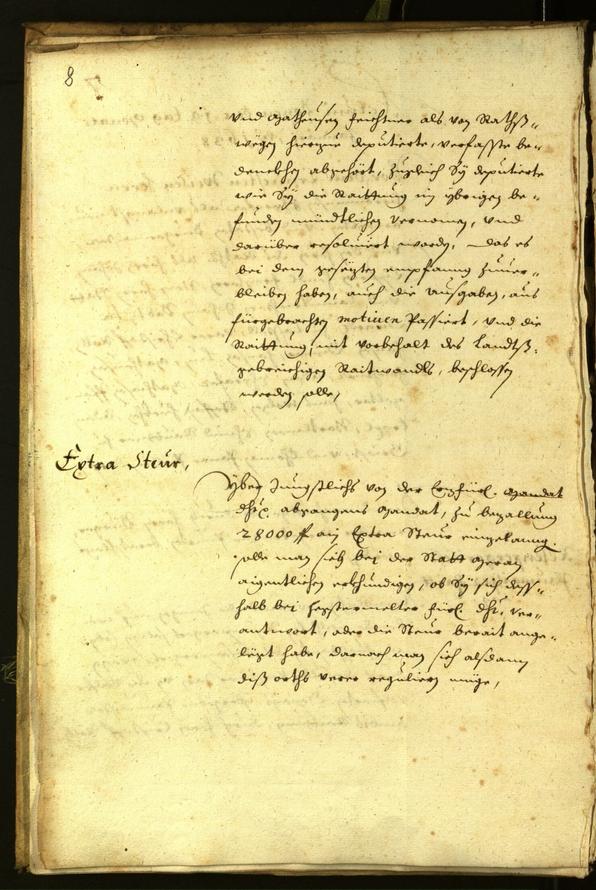 8
und Matheusen Feichtner als von Raths-
wegen hierzue deputierte, verfasste be-
denckhen abgehört, zugleich Sÿ deputierte
wie Sÿ die Raittung im ÿbrigen be-
funden mündtlichen vernomen, und
darüber resoluiert worden, das es
bei dem gesezten empfang zuuer-
bleiben haben, auch die ausgaben, aus
fürgebrachten motiuen Passiert, und die
Raittung, mit vorbehalt des Landtß-
gebreichigen Raitwandls, beschlossen
werden solle,
Extra Steur,
Yber Jüngstlichs von der Erzfürl.
Drt. abgangens Mandat, zu bezallung
28000 f ain Extra Steur eingelangt.
solle man sich bei der Statt Meran
aigentlichen erkhundigen, ob Sÿ sich dess-
halb bei hegstermelter fürl. Drt. ver-
antwort, oder die Steur berait ange-
legt habe, darnach man sich alsdann
diß orths verer regulieren müge,